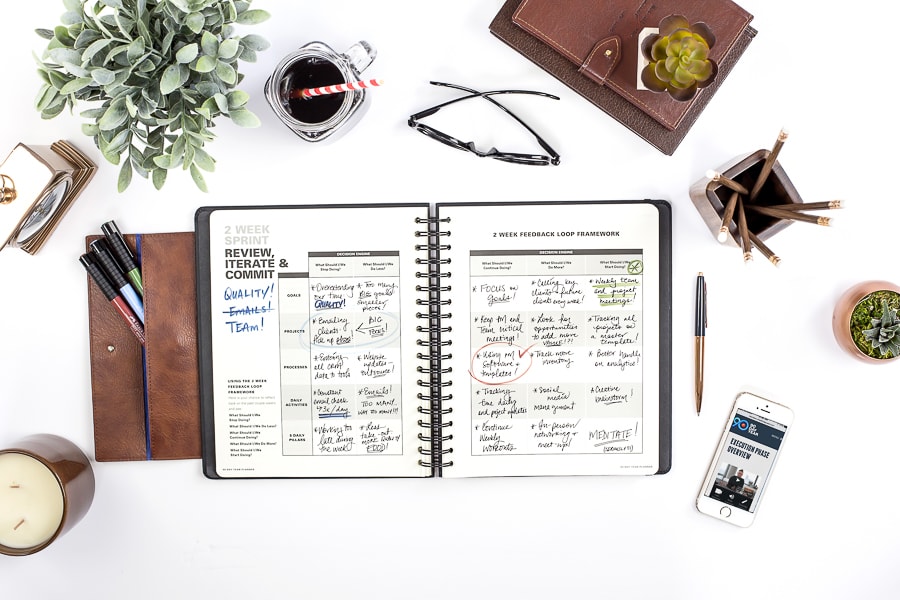 2 WEEK
SPRINT
REVIEW,
ITERATE &
COMMIT
QUALITY!
EMAILS!
TEAM!
USING THE 2 WEEK
FEEDBACK LOOP
FRAMEWORK
What Should I/We
Stop Doing?
What Should I/We Do Less?
What Should I/We
Continue Doing?
What Should I/We Do More?
What Should I/We
Start Doing?
DECISION ENGINE
What Should I/We
Stop Doing?
What Should I/We
Do Less?
GOALS
* Overextending
our time
QUALITY!
* Too many
BIG goals!
smaller
pieces!
PROJECTS
* Emailing
clients -
Pick up phone!
BIG
FOCUS!
PROCESSES
* Entering
all cash
data to tools
* Website
updates -
outsource!
DAILY
ACTIVITIES
* Constant
email check
4-5x/day
* Emails!
TOO MANY
WAY TOO MANY!!!
5 DAILY
PILLARS
* Working too
late during
the week!
* Less
take-out
more
FOOD!
90 DAY YEAR PLANNER
2 WEEK FEEDBACK LOOP FRAMEWORK
DECISION ENGINE
What Should I/We
Continue Doing?
What Should I/We
Do More?
What Should I/We
Start Doing?
* FOCUS on
Goals!
* Calling key
clients + future
clients every week!
* Weekly team
and project
meetings!
* Keep 1on1 and
Team initial
meetings!
* Look for
opportunities
to add more
value!?!
* Tracking all
projects on a
master template!
* Using my
software +
templates!
* Track more
inventory.
* Better handle
on analytics!
* Tracking
time daily
and project updates
* Social
media
management
* Creative
brainstorm!
* Continue
Weekly
Workouts
* In-person
networking +
meet ups!
MEDITATE!
90 DAY YEAR PLANNER
90
DAY
YEAR
EXECUTION PHASE
OVERVIEW